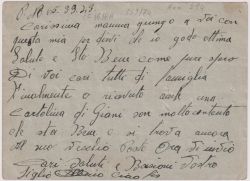 P.M. 15.3.9.23
Carissima mamma giungo a voi con
questa mia per dirvi che io godo ottima
Salute e Sto Bene come pure spero
Di voi con tutti di famiglia
Finalmente o ricevuto anch una
Cartolina di Giani son molto contento
che sta Bene e si trova ancora
Al suo vecchio Posto Ora vi invio
Cari Saluti e Bacioni Vostro
Figlio ciao